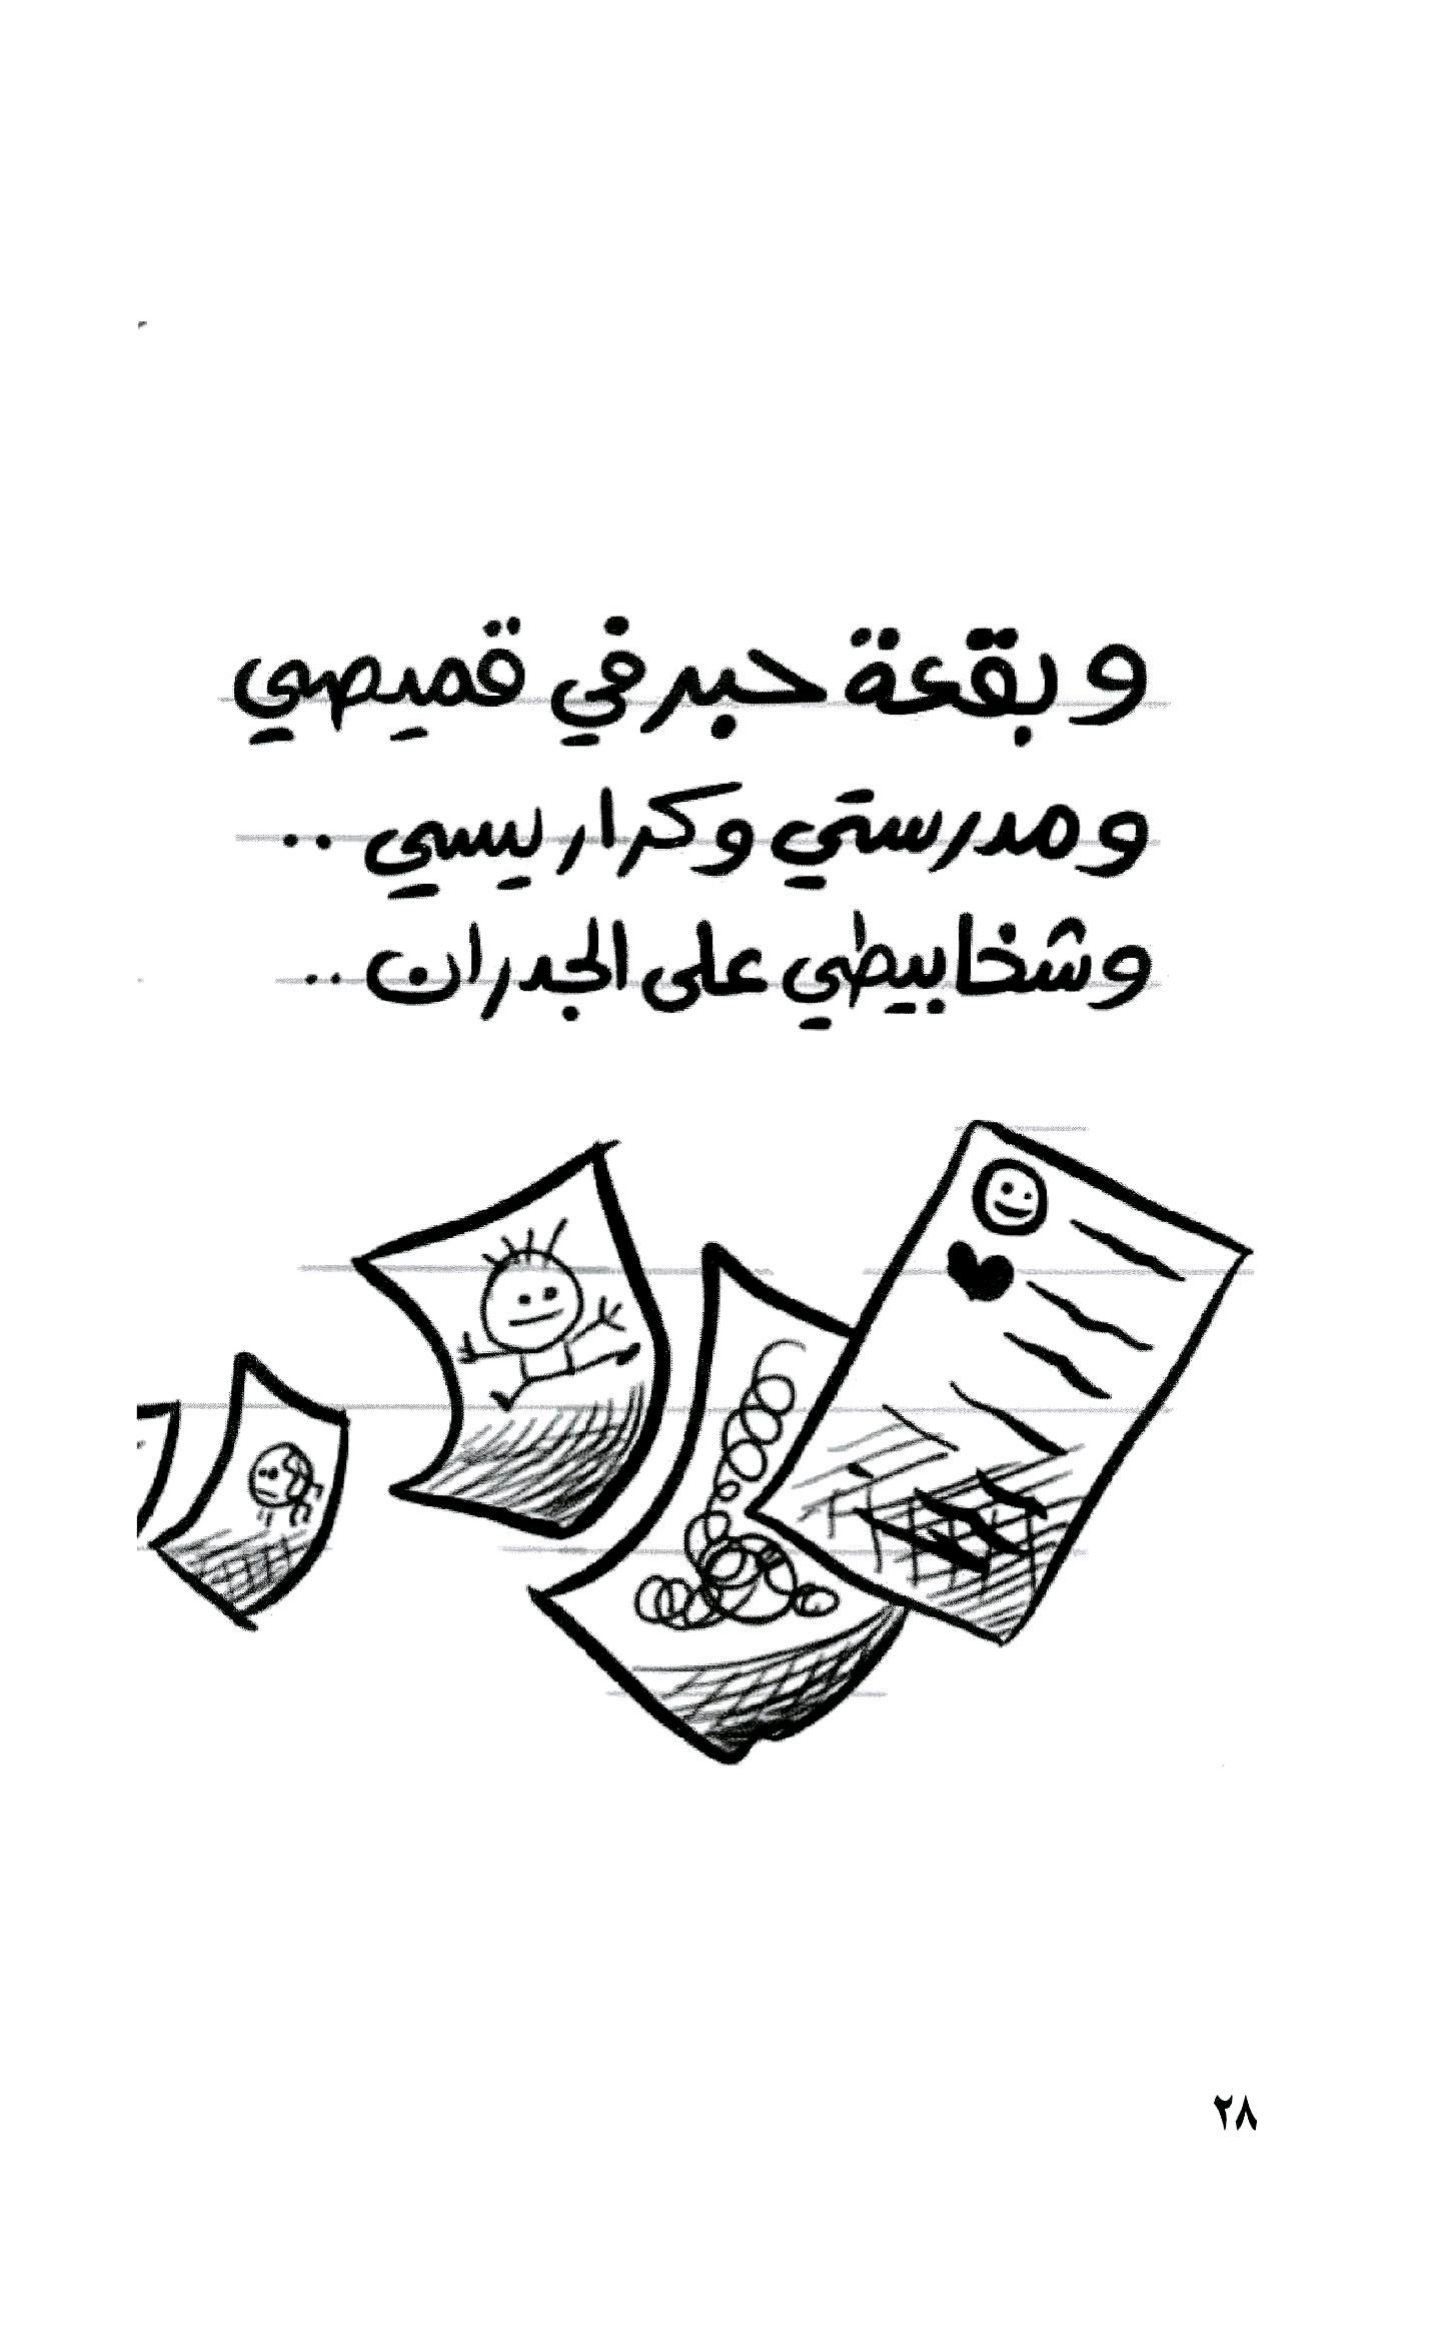 وبقعة حبر في قميصي
ومدرستي وكراريسي ..
وشخابيطي على الجدران ..
٢٨